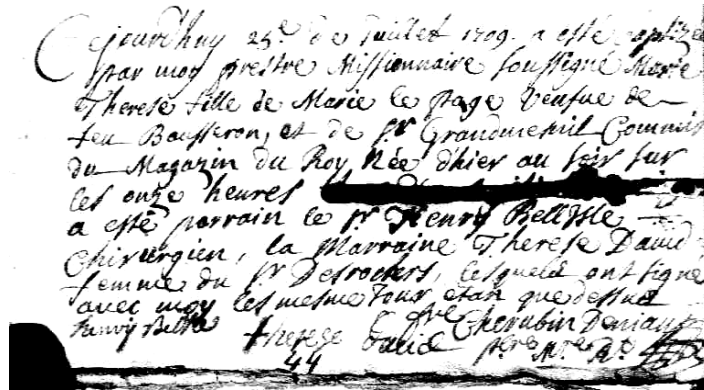 Cejourdhuy 25e de Juillet 1709. a esté baptizée
par moy prestre Missionnaire soussigné Marie
Therese fille de Marie le page veufue de
feu Bousseron, et de Sr Grandmenil Commis
du Magazin du Roy Née d'hier au soir sur
les onze heures
a esté parrain le Sr Henry Bellisle
Chirurgien, la Marraine Therese David
femme du Sr Desrochers, lesquels ont signé
avec moy les mesme Jour et an que dessus
henry Therese David fre Cherubin Deniau
44